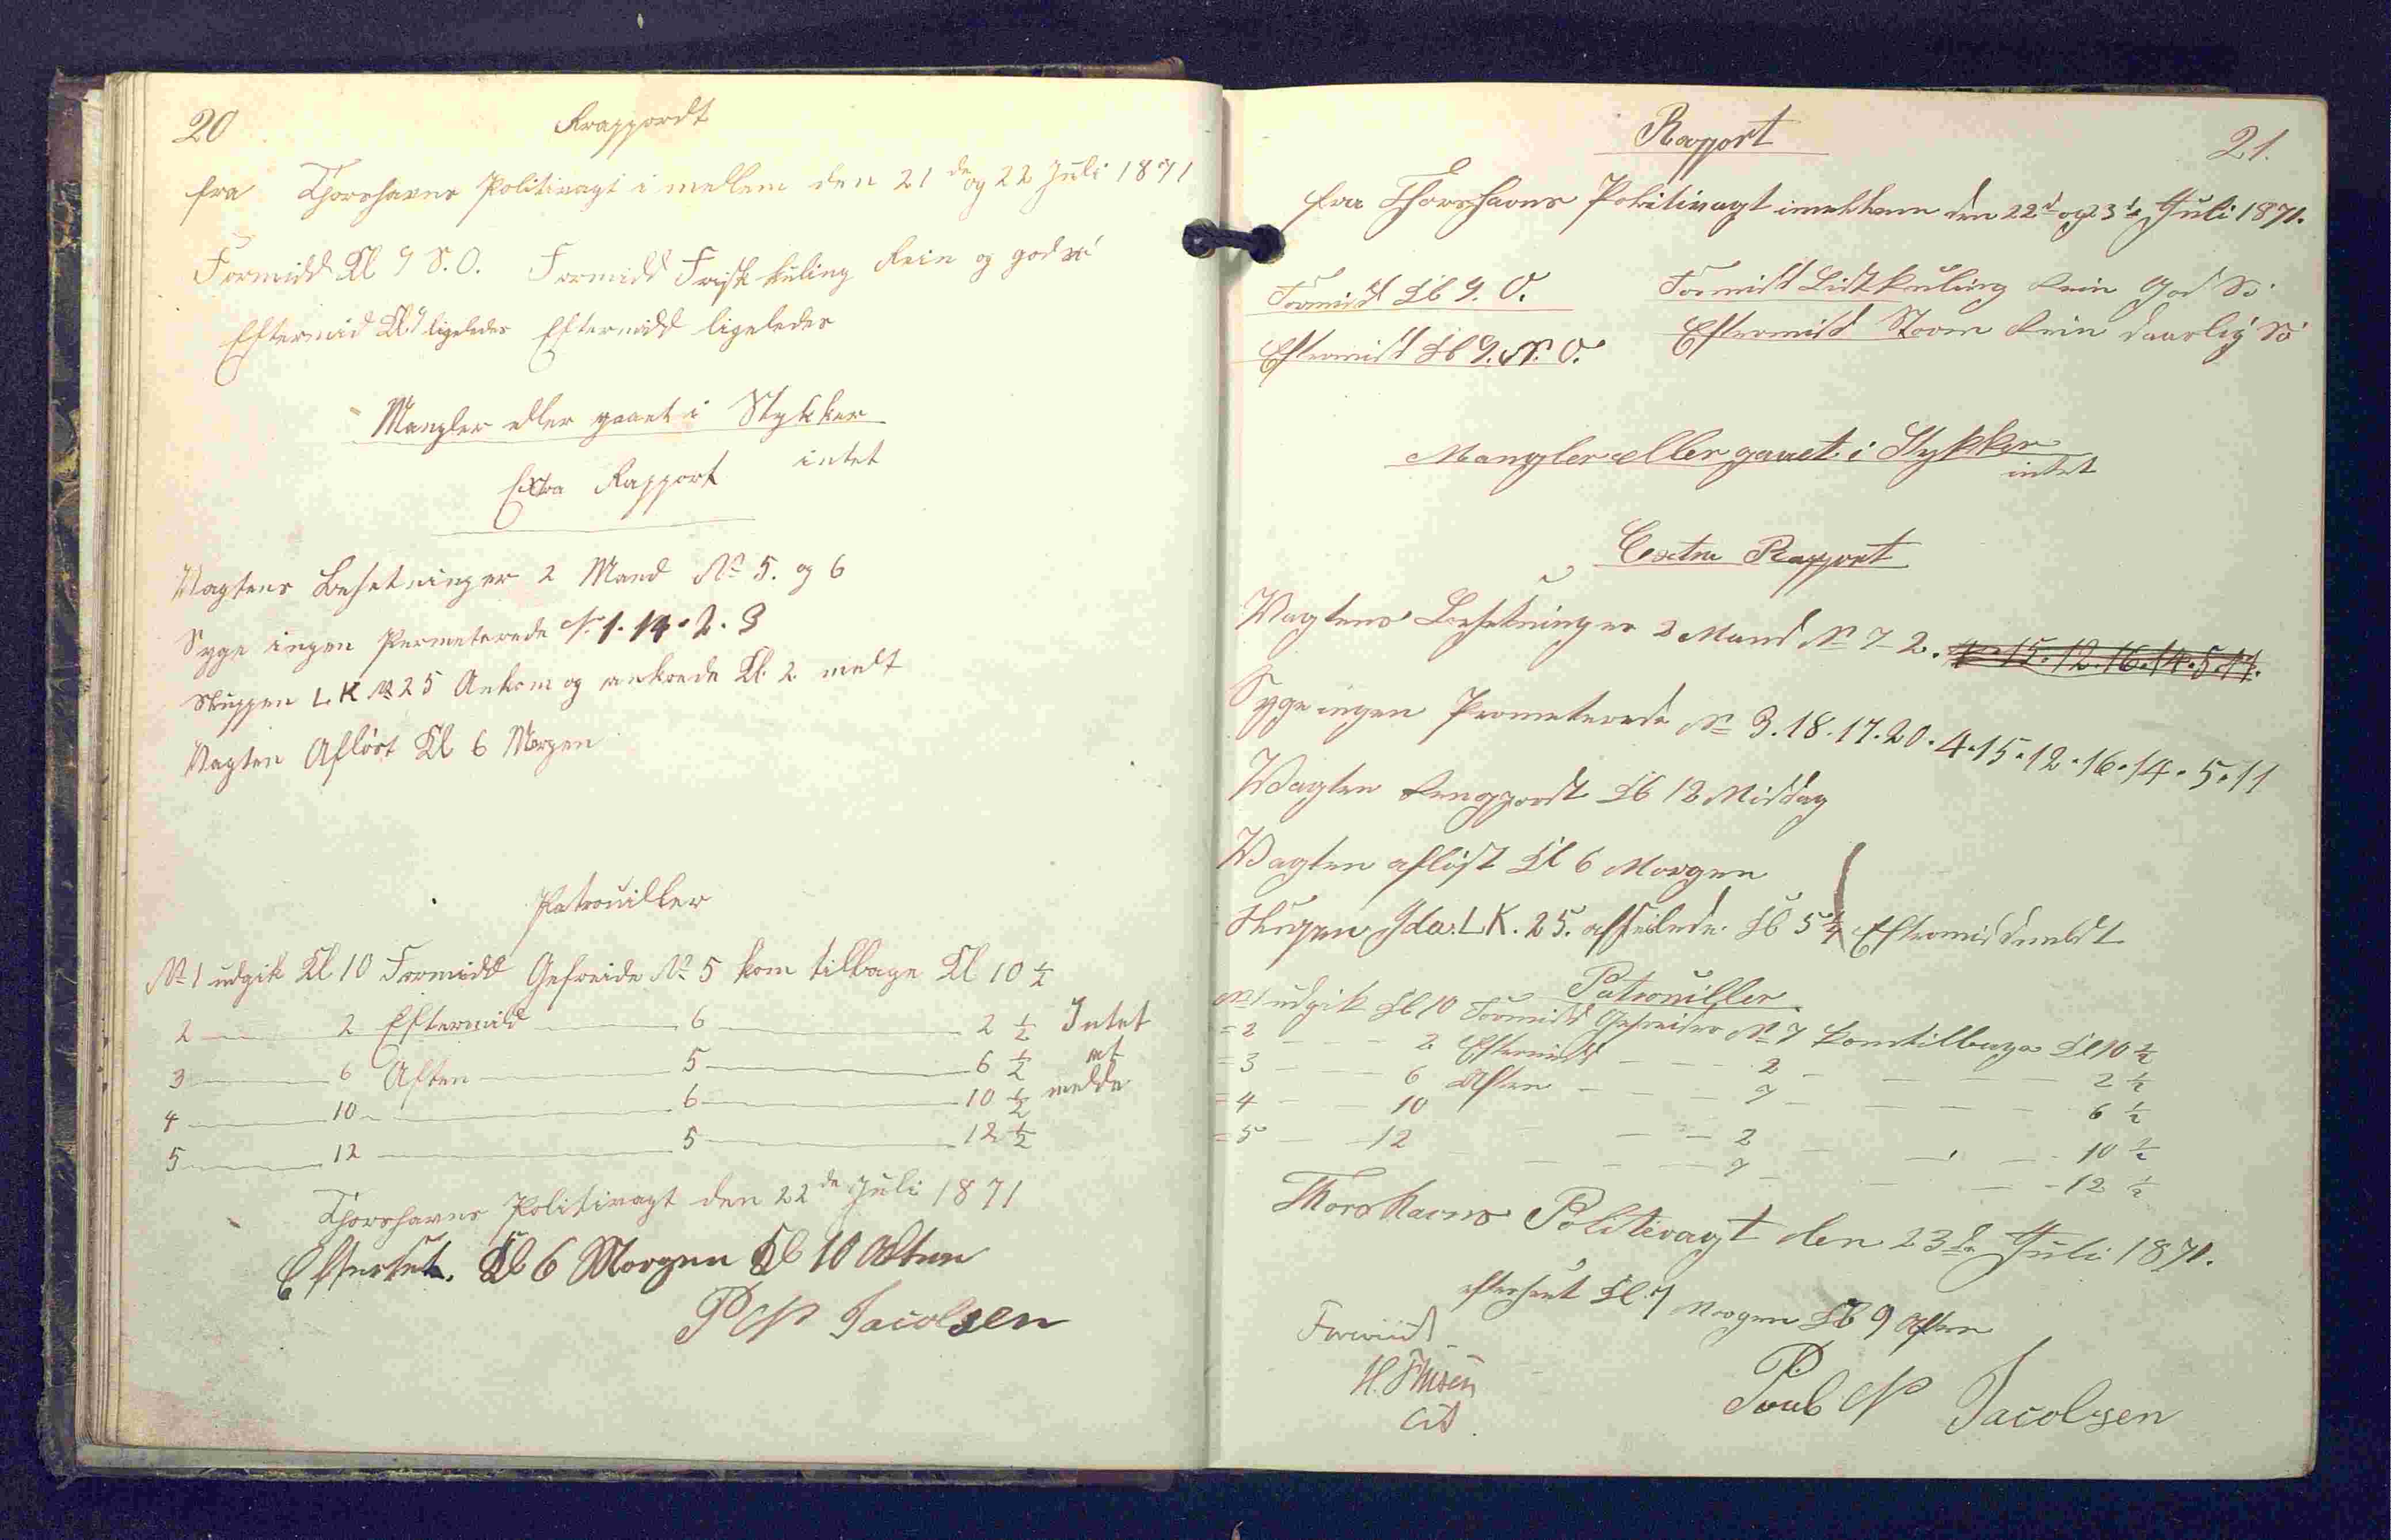 20
Rrappordt
fra Thorshavns Politivagt i mellem den 21 de og 22 Juli 1871
Formidd Kl 9 S.O. Formidd Frisk kuling Rein og god sö
Eftermid Kl 9 ligeledes Eftermidd ligeledes
Mangler eller gaaet i Stykker
intet
Extra Rapport
Vagtens Besetninger 2 Mand No 5. og 6
Syge ingen Permeterede No. 1. 14. 2. 3
Sluppen L. K No 25 Ankom og ankrede Kl. 2. melt
Vagten Aflöst Kl 6 Morgen
Patrouiller
No 1 udgik Kl. 10 Formidd Gefreide No 5 kom tilbage Kl 10 ½
2 — 2 Eftermid — 6 — 2 ½ Intet
3 — 6 Aften — 5 — 6 ½ at
4 — 10 — 6 — 10 ½ melde
5 — 12 — 5 — 12 ½
Thorshavns Politivagt den 22 de Juli 1871
Efterset. Kl 6 Morgen Kl 10 Aften
P N Jacobsen
21.
Rapport
fra Thorshavns Politivagt imellem den 22 d og 23 de Juli 1871.
Formidd Kl 9. O. Formidd Lidt kuling Rein God Sö
Eftermidd Kl 9. N. O. Eftermidd Storm Rein daarlig Sö
Mangler eller gaaet i Stykker
intet
Cextra Rapport
Vagtens Besetninger 2 Mand No 7-2. 4. 15. 12. 16. 14. 5. 11.
Syge ingen Prometerede No 3. 18. 17. 20. 4. 15. 12. 16. 14. 5. 11
Vagten Rengjordt Kl 12 Middag
Vagten aflöst Kl 6 Morgen
Slupen Ida. L K. 25. afseilede Kl 5 ¼ Eftermid meldt
Patrouiller
No 1 udgik Kl 10 Formidd Gefreider No 7 kom tilbage Kl 10 ½
= 2 — 2 Eftermidd — 2 — 2 ½
= 3 — 6 Aften — 7 — 6 ½
= 4 — 10 — 2 — 10 ½
= 5 — 12 — 7 — 12 ½
Thorshavns Politivagt den 23 de Juli 1871.
efterseet Kl. 7 Morgen Kl 9 Aften
P.
Poul N Jacobsen